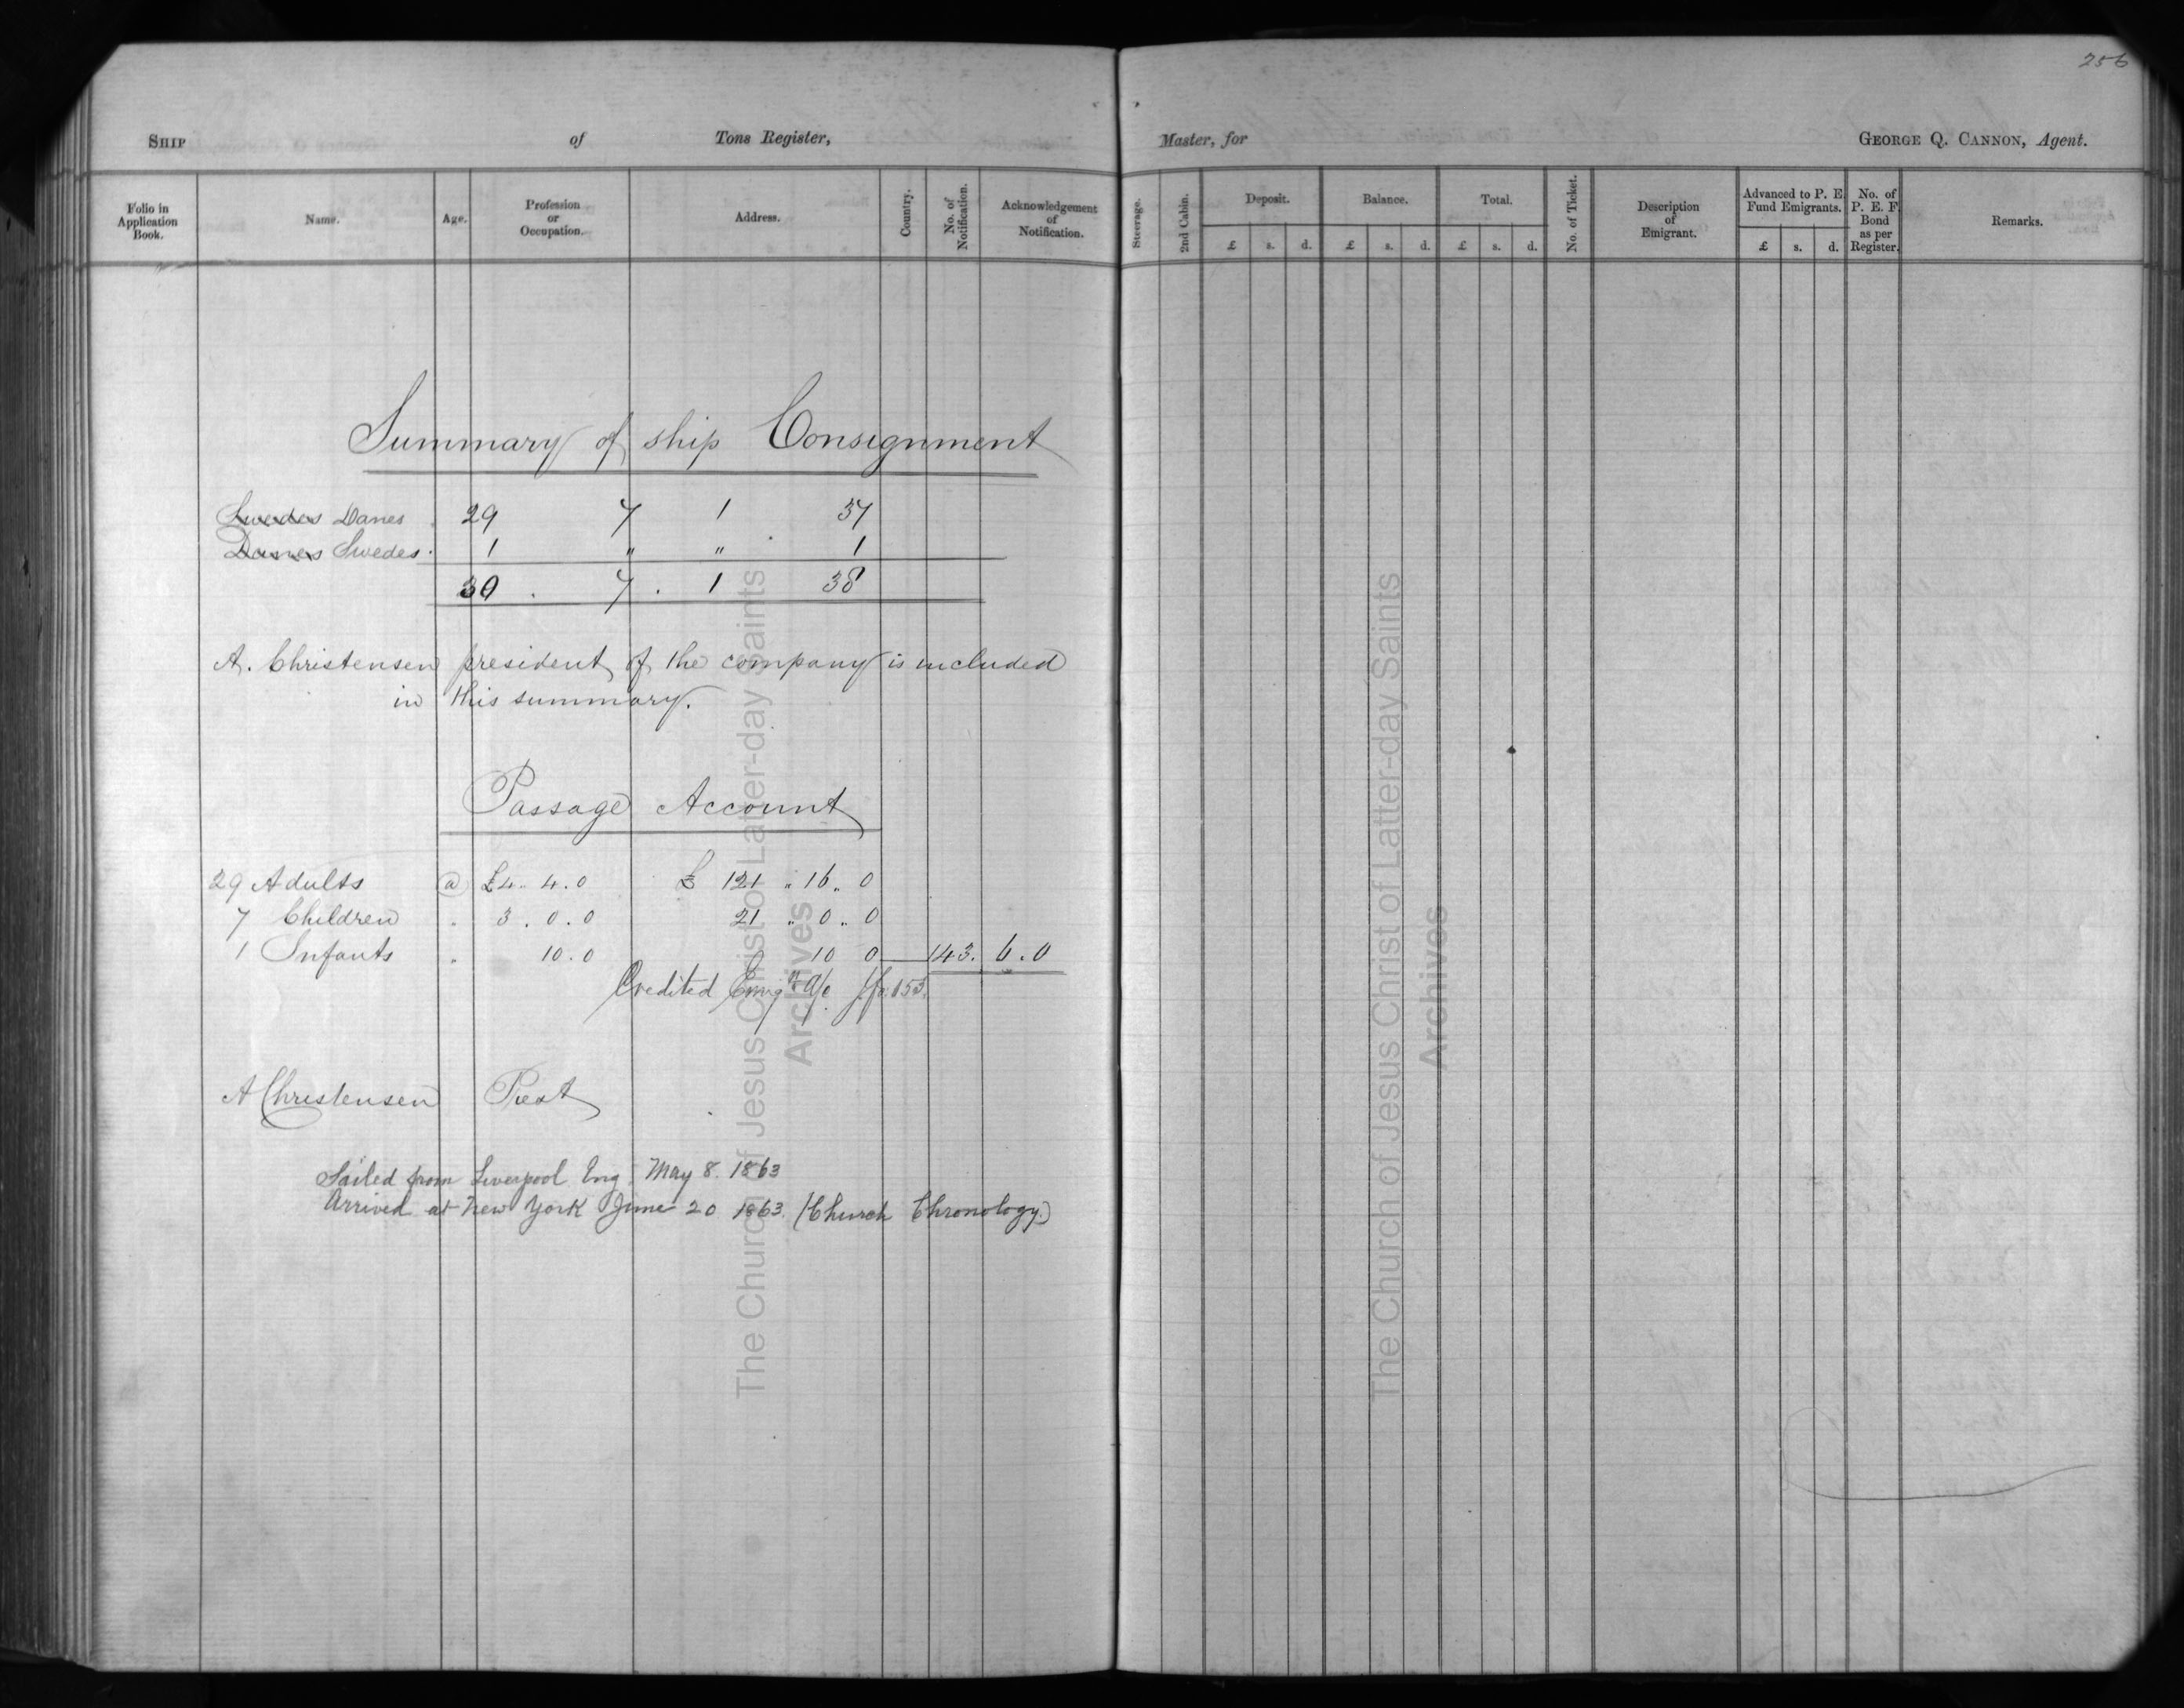 256
SHIP of Tons Register, Master, for GEORGE Q. CANNON, Agent.
Folio in Application Book. Name. Age. Profession or Occupation. Address. Country. No. of Notification. Acknowledgement of Notification. Steerage. 2nd Cabin. Deposit. Balance. Total. No. of Ticket. Description of Emigrant. Advanced to P. E. Fund Emigrants. No. of P. E. F. Bond as per Register. Remarks.
£ s. d. £ s. d. £ s. d. £ s. d.
Summary of ship Consignment
Swedes Danes 29 7 1 37
Danes Swedes. 1 " " 1
30 . 7 . 1 38
A. Christensen president of the company is included
in this summary.
Passage Account
29 Adults @ £4 .. 4 . 0 £ 121 .. 16 .. 0
7 Children . 3 . 0 . 0 21 .. 0 .. 0
1 Infants .. 10 . 0 10 0 143. 6 . 0
Credited Emign a/c fo. 153.
A Christensen Prest
Sailed from Liverpool Eng. May 8. 1863
Arrived at New York June 20 1863. (Church Chronology.)
The Church of Jesus Christ of Latter-day Saints
Archives
The Church of Jesus Christ of Latter-day Saints
Archives